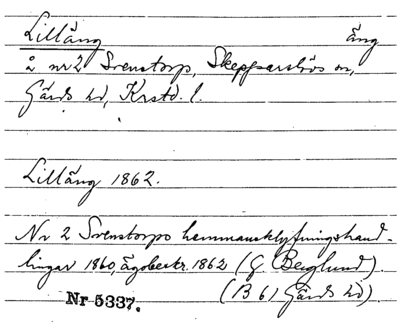 Lilläng äng
å nr 2 Svenstorp, Skepparslövs sn,
Gärds hd, Krstd. l.
Lilläng 1862.
Nr 2 Svenstorps hemmansklyfningshand-
lingar 1860, ägobeskr. 1862 (G. Berglund).
(B 61 Gärds hd).
Nr 5337.